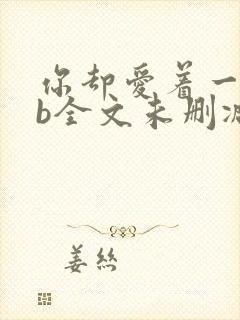 你却爱着一
b全文未删减
姜丝